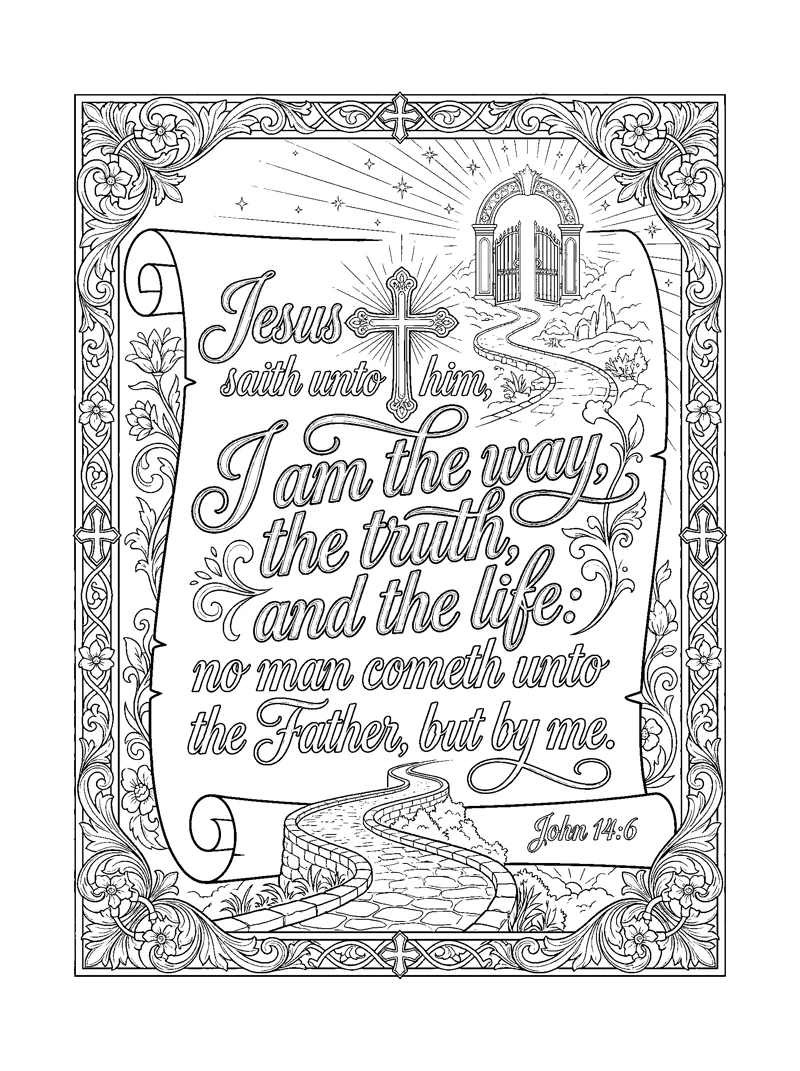 Jesus
saith unto him,
I am the way,
the truth,
and the life:
no man cometh unto
the Father, but by me.
John 14:6